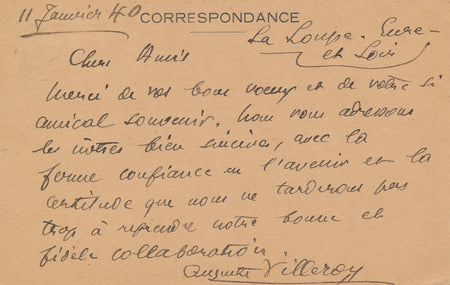 11 Janvier 40
CORRESPONDANCE
La Loupe. Eure-
et Loir
Chers Amis
Merci de vos bons voeux et de votre si
amical souvenir. Nous vous adressons
les nôtres bien sincères, avec la
ferme confiance en l'avenir et la
certitude que nous ne tarderons pas
trop à reprendre notre bonne et
fidèle collaboration.
Auguste Villeroy